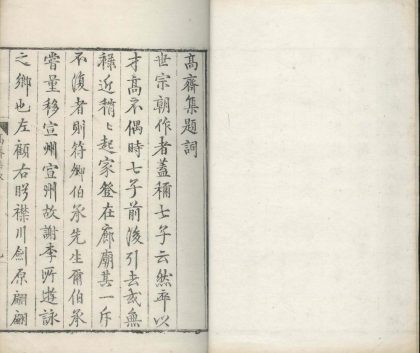 高齋集題詞
世宗朝作者蓋稱七子云然率以
才高不偶時七子前後引去或無
祿近稍〻起家登在廊廟其一斥
不復者則符卿伯承先生爾伯承
嘗量移宣州宣州故謝李所遊詠
之鄉也左顧右眄襟川劍原翩翩